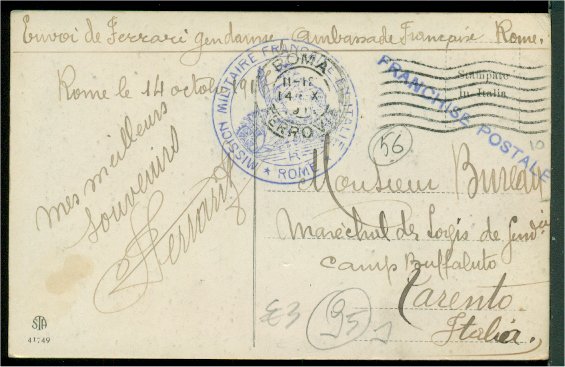 Envoi de Ferrari gendarme Ambassade Française Rome.
Rome le 14 octobre
mes meilleurs
souvenirs
Ferrari
MISSION MILITAIRE FRANÇAISE EN ITALIE
★ ROME ★
ROMA
14 X
FERROVIA
Stampato
in Italia
FRANCHISE POSTALE
56
10
Monsieur Bureau
Maréchal des Logis de Gend
Camp Buffaluto
Tarento
Italia.
£3
95
STA
41749